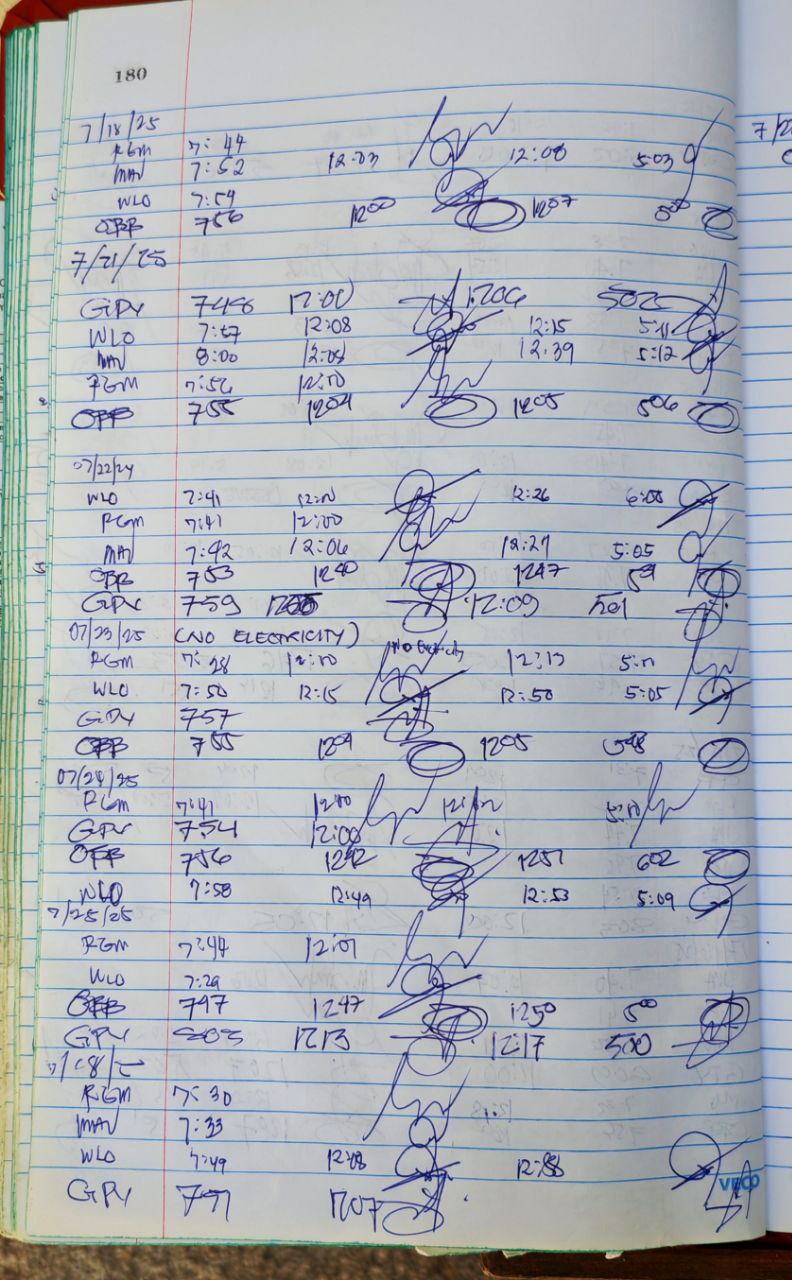 180
7/18/25
RGM 7:44
MAV 7:52 12:03 12:08 5:03
WLO 7:59
OBB 756 1200 1207 500
7/21/25
GPY 748 12:00 1206 502
WLO 7:57 12:08 12:15 5:11
MAV 8:00 12:08 12:39 5:12
RGM 7:56 12:00
OBB 755 1204 1205 506
07/22/24
WLO 7:41 12:00 12:26 6:00
RGM 7:41 12:00
MAV 7:42 12:06 12:27 5:05
OBB 753 1240 1247
GPY 759 12:09 501
07/23/25 (NO ELECTRICITY)
RGM 7:28 12:00 No Electricity 12:13
WLO 7:50 12:15 12:50 5:05
GPY 757
OBB 755 1204 1205
07/24/25
RGM 7:41 12:00
GPY 754 12:00
OBB 756 1242 1251 602
WLO 7:58 12:49 12:53 5:09
7/25/25
RGM 7:44 12:01
WLO 7:29
OBB 747 1247 1250 500
GPY 803 1213 12:17 500
RGM 7:30
MAV 7:33
WLO 7:49 12:48
GPY 1207
VECO